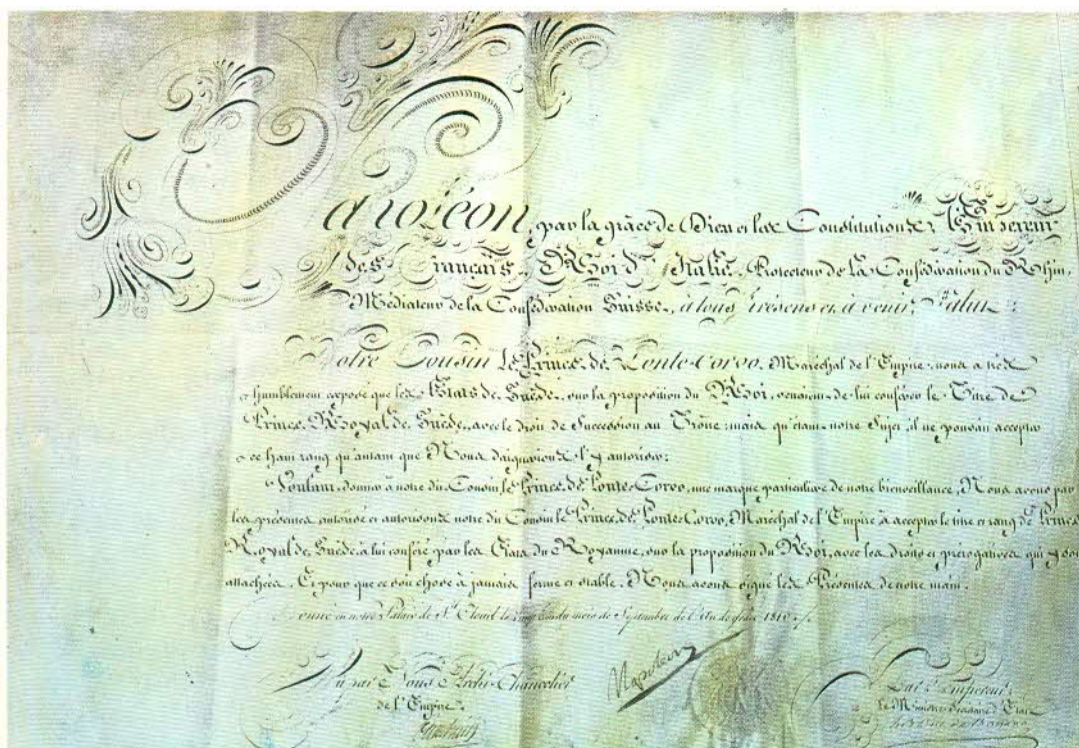 Napoléon, par la grâce de Dieu et les Constitutions, Empereur
des Français, Roi d'Italie, Protecteur de la Confédération du Rhin,
Médiateur de la Confédération Suisse, à tous présens et à venir, Salut:
Notre Cousin le Prince de Ponte-Corvo, Maréchal de l'Empire, nous a très
humblement exposé que les Etats de Suède, sur la proposition du Roi, venaient de lui conférer le Titre de
Prince Royal de Suède, avec le droit de Succession au Trône; mais qu'étant notre Sujet, il ne pouvait accepter
ce haut rang qu'autant que Nous daignerions l'y autoriser:
Voulant donner à notre dit Cousin le Prince de Ponte-Corvo, une marque particulière de notre bienveillance, Nous avons par
les présentes autorisé et autorisons notre dit Cousin le Prince de Ponte-Corvo, Maréchal de l'Empire à accepter le titre et rang de Prince
Royal de Suède, à lui conféré par les Etats du Royaume, sur la proposition du Roi, avec les droits et prérogatives qui y sont
attachés. Et pour que ce soit chose à jamais ferme et stable, Nous avons signé les Présentes de notre main.
Donné en notre Palais de St Cloud le du mois de Septembre de l'An de grâce 1810
Vu par Nous Archi-Chancelier
de l'Empire
Napoleon
Par l'Empereur
le Ministre Secrétaire d'Etat